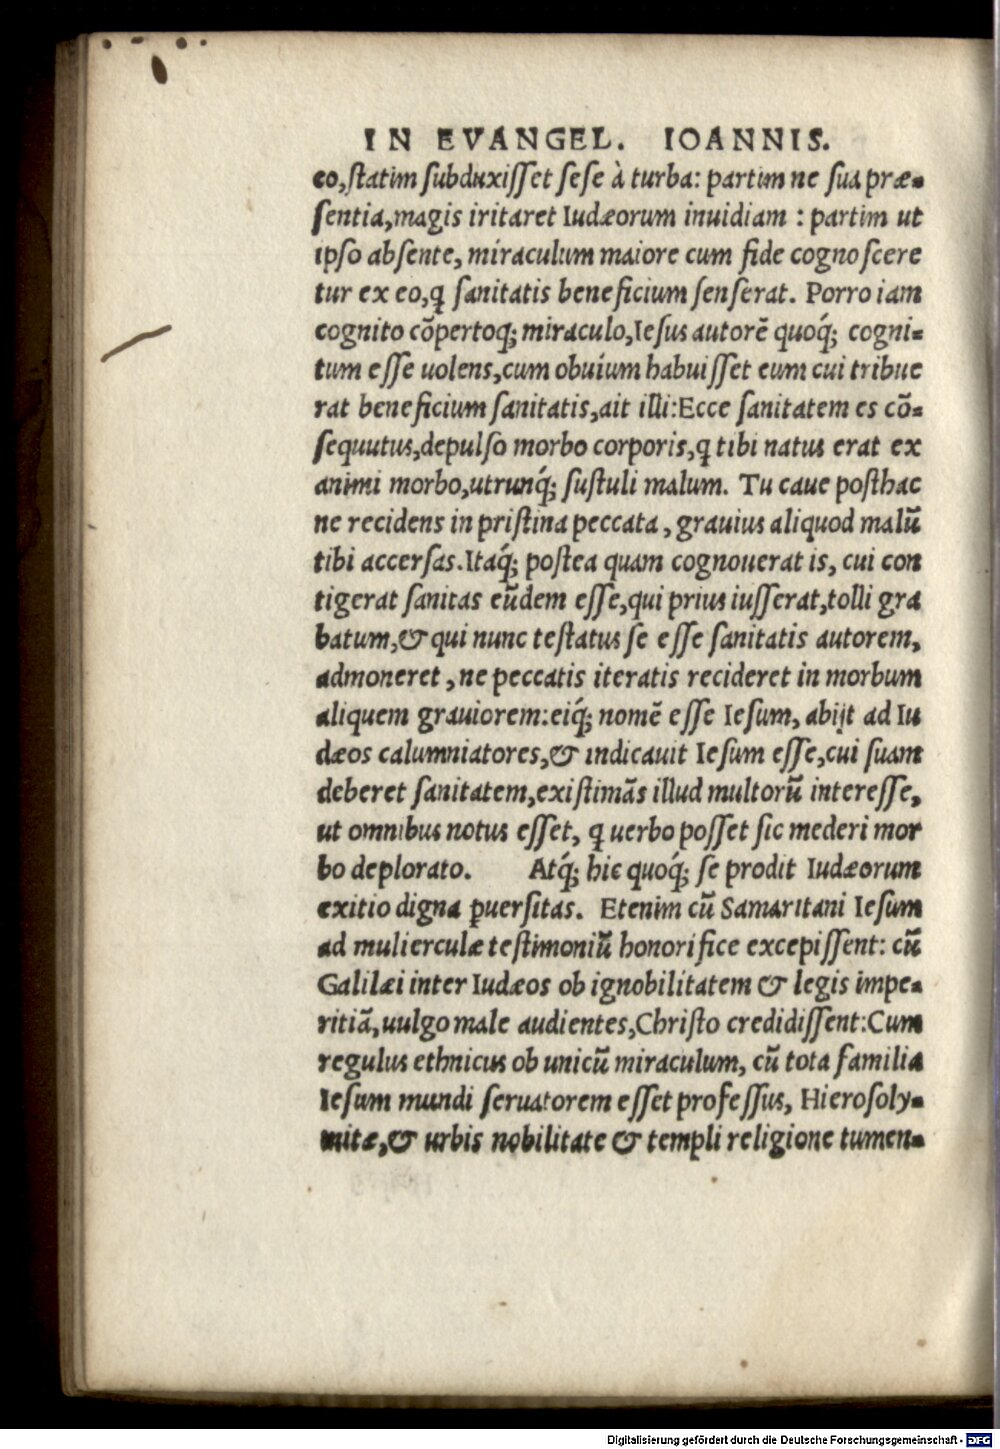 IN EVANGEL. IOANNIS.
eo, statim subduxisset sese à turba: partim ne sua præ=
sentia, magis iritaret Iudæorum inuidiam : partim ut
ipso absente, miraculum maiore cum fide cognoscere
tur ex eo, ꝗ sanitatis beneficium senserat. Porro iam
cognito cõpertoq́; miraculo, Iesus autorẽ quoq́; cogni=
tum esse uolens, cum obuium habuisset eum cui tribue
rat beneficium sanitatis, ait illi: Ecce sanitatem es cõ=
sequutus, depulso morbo corporis, ꝗ tibi natus erat ex
animi morbo, utrunq́; sustuli malum. Tu caue posthac
ne recidens in pristina peccata, grauius aliquod malũ
tibi accersas. Itaq́; postea quam cognouerat is, cui con
tigerat sanitas eũdem esse, qui prius iusserat, tolli gra
batum, & qui nunc testatus se esse sanitatis autorem,
admoneret, ne peccatis iteratis recideret in morbum
aliquem grauiorem: eiq́; nomẽ esse Iesum, abijt ad Iu
dæos calumniatores, & indicauit Iesum esse, cui suam
deberet sanitatem, existimãs illud multorũ interesse,
ut omnibus notus esset, ꝗ uerbo posset sic mederi mor
bo deplorato. Atq́; hic quoq́; se prodit Iudæorum
exitio digna ꝑuersitas. Etenim cũ Samaritani Iesum
ad mulierculæ testimoniũ honorifice excepissent: cũ
Galilæi inter Iudæos ob ignobilitatem & legis impe=
ritiã, uulgo male audientes, Christo credidissent: Cum
regulus ethnicus ob unicũ miraculum, cũ tota familia
Iesum mundi seruatorem esset professus, Hierosoly=
mitæ, & urbis nobilitate & templi religione tumen=
Digitalisierung gefördert durch die Deutsche Forschungsgemeinschaft - DFG